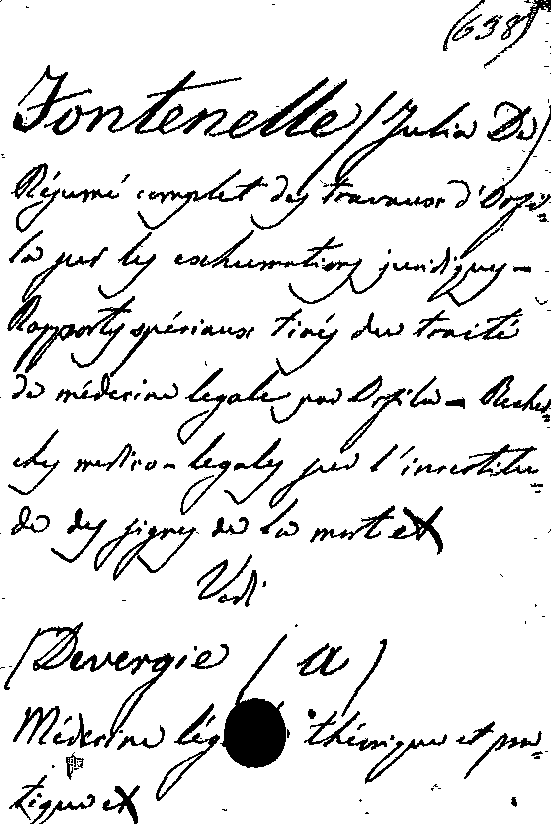 (638)
Fontenelle (Julia De)
Résumé complet des travaux d'Orfi=
la sur les exhumations juridiques –
Rapports spéciaux tirés du traité
de médecine legale par Orfila – Recher=
ches medico-legales sur l'incertitu=
de des signes de la mort et
Vedi
(Devergie (A)
Médecine lég théorique et pra=
tique et